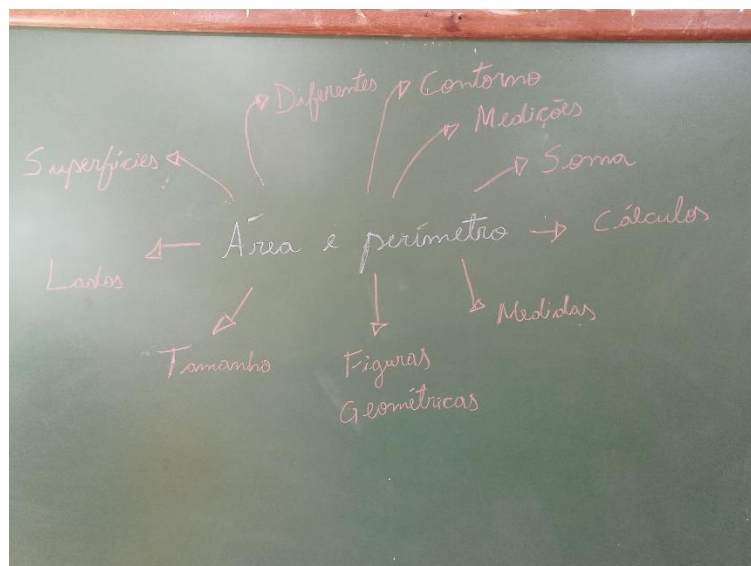 Diferentes
Contorno
Medições
Superfícies
Soma
Área e perímetro
Cálculos
Lados
Medidas
Tamanho
Figuras
Geométricas